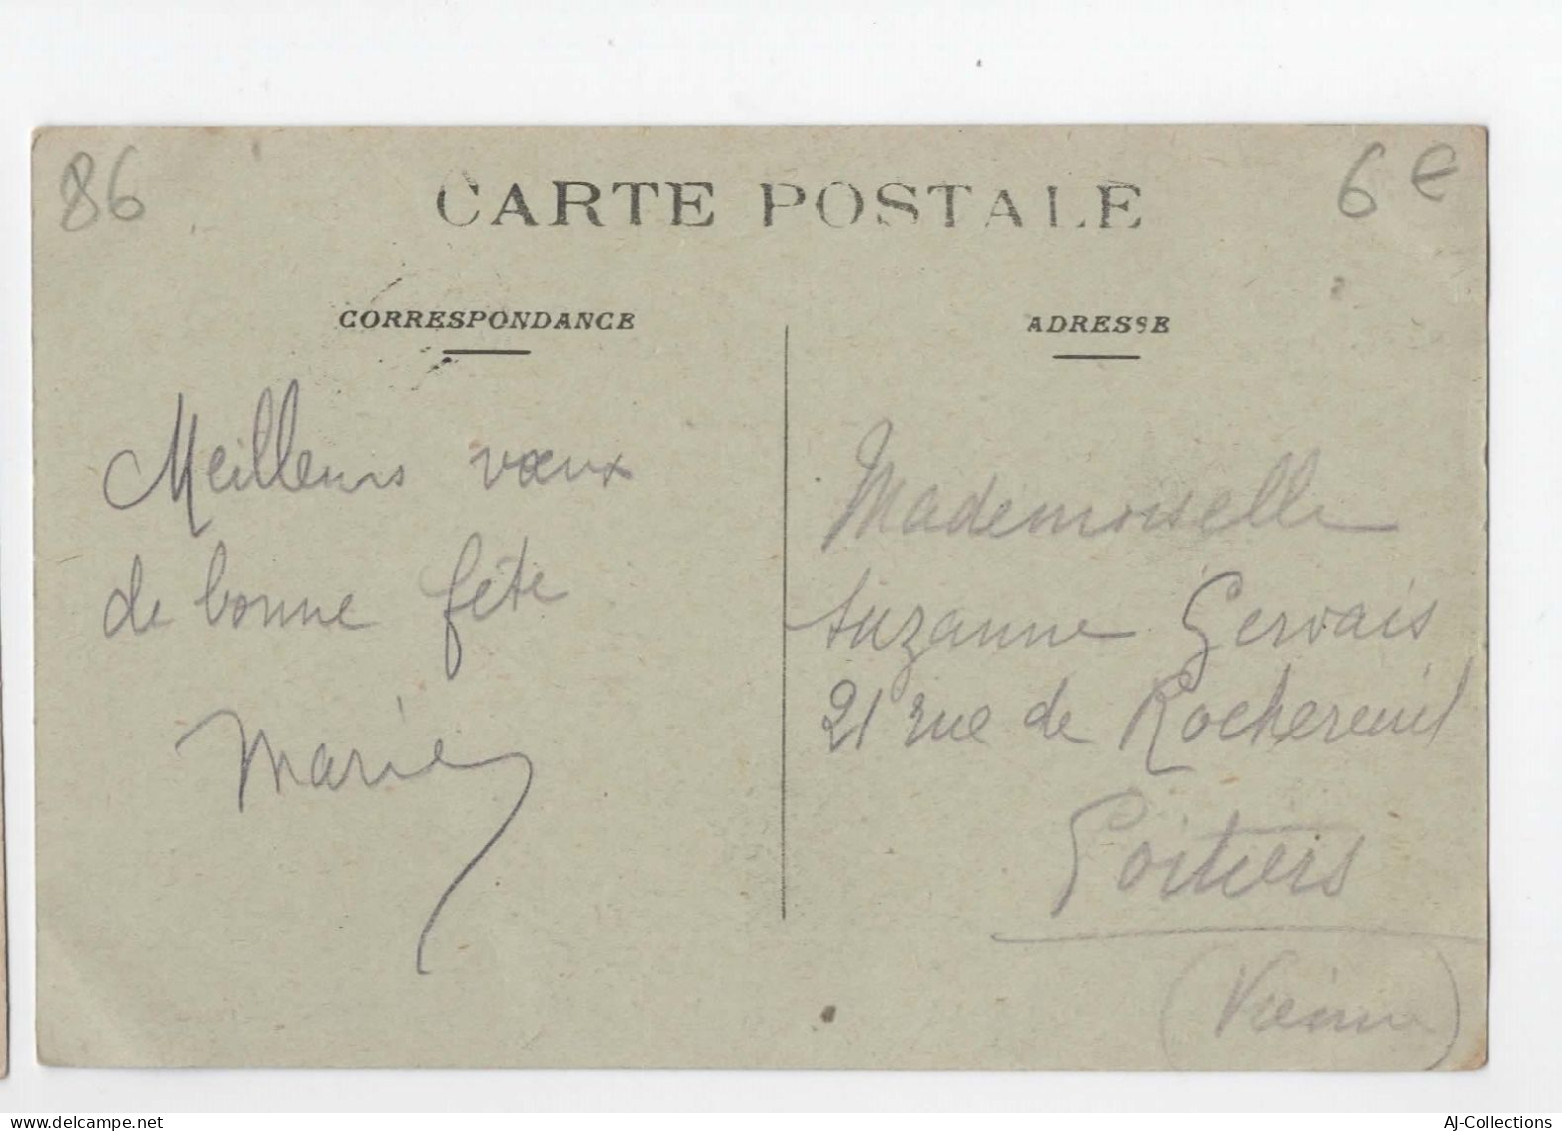 86
6€
CARTE POSTALE
CORRESPONDANCE
ADRESSE
Meilleurs vœux
de bonne fête
Marie
Mademoiselle
Suzanne Gervais
21 rue de Rochereuil
Poitiers
(Vienne)
AJ-Collections